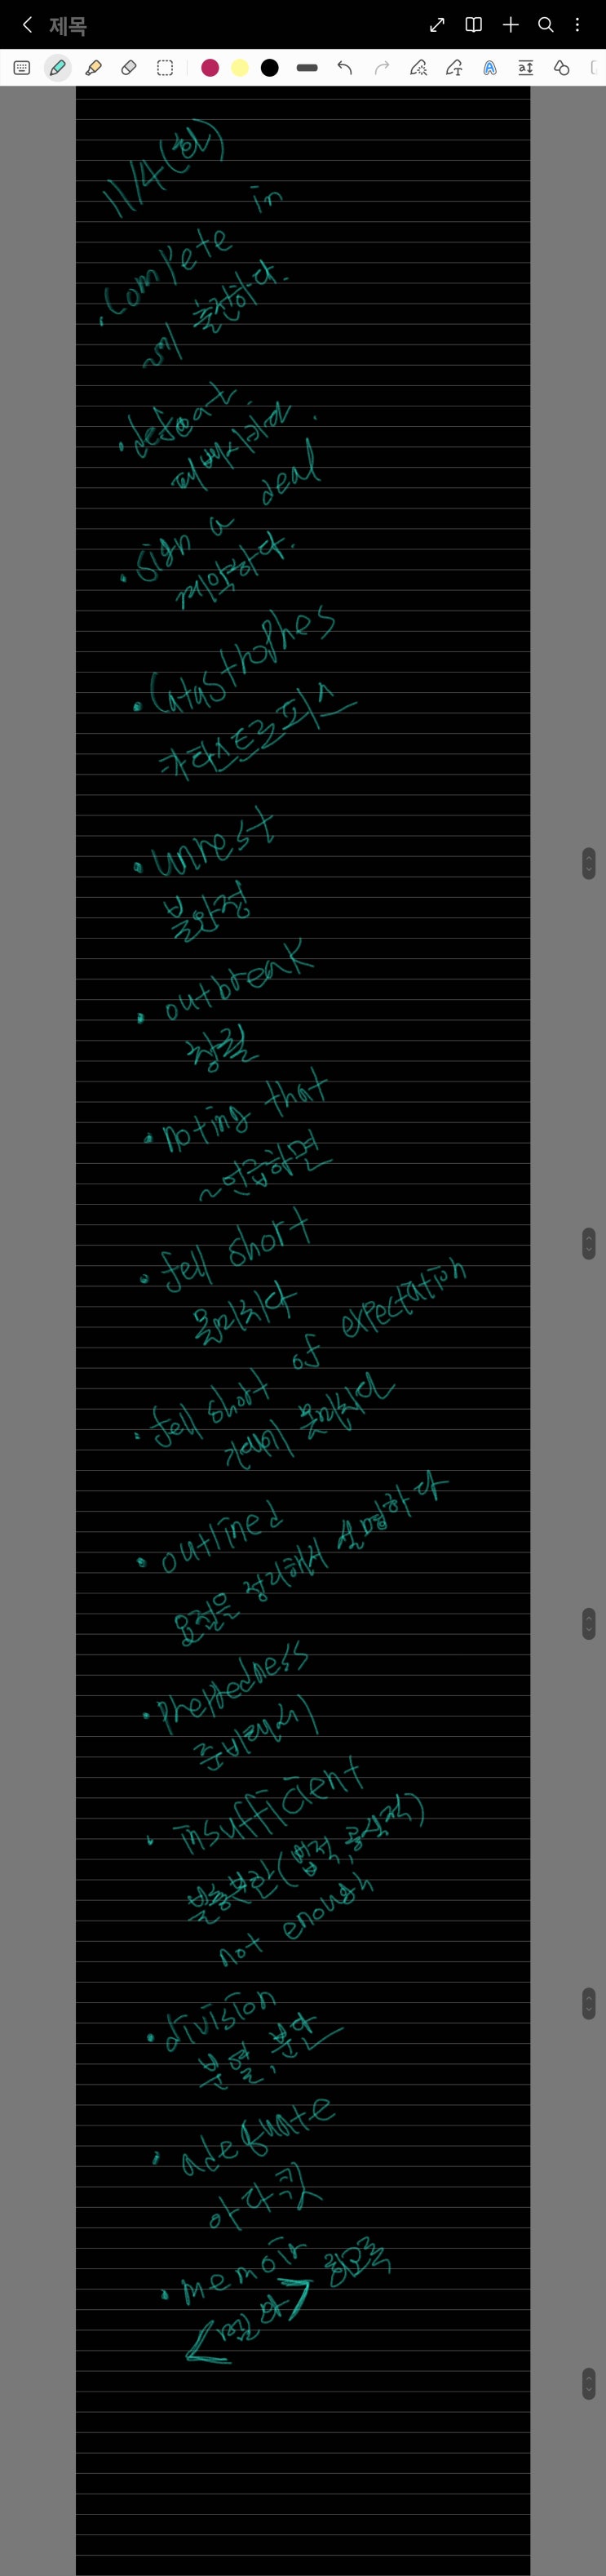 제목
11/4(화)
· compete in
~에 출전하다.
· defeat
패배시키다.
· sign a deal
계약하다.
· catastrophes
카타스트로피스
· unrest
불안정
· outbreak
창궐
· noting that
~언급하면
· fell short
못미치다
· fell short of expectation
기대에 못미치다
· outlined
요점을 정리해서 설명하다
· preparedness
준비태세
· insufficient
불충분한(법적,공식적)
not enough
· division
분열, 분단
· adequate
아다큇
· memoir 회고록
<멤와>